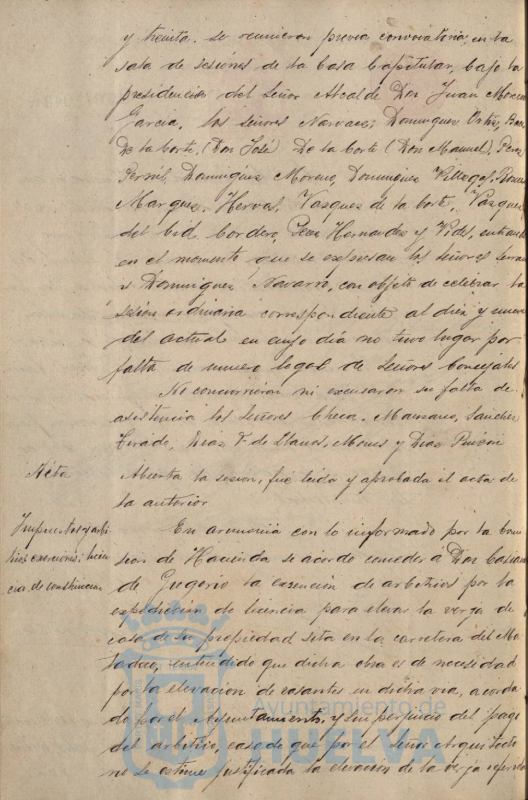 y treinta. se reunieron previa convocatoria, en la
sala de sesiones de la Casa Capitular, bajo la
presidencia del Señor Alcalde Don Juan
Garcia, los señores Narvaez, Dominguez Ortiz,
De la Corte, (Don José) De la Corte (Don Manuel), Perez
Dominguez Moreno, Dominguez Villegas,
Marquez, Hervas, Vazquez de la Corte, Vazquez
del Cid, Cordero, Hernandez y Vides, entrando
en el momento que se expresan los señores
y Dominguez Navarro, con objeto de celebrar la
sesion ordinaria correspondiente al diez y nueve
del actual en cuyo día no tuvo lugar por
falta de numero legal de Señores Concejales
No concurrieron ni excusaron su falta de
asistencia los señores Checa, Mamano, Sanchez
Tirado, Diaz F. de Llanos, Mones y Diaz Pinzon
Acta
Abierta la sesion, fué leida y aprobada el acta de
la anterior
Impuestos y arbi
trios exenciones; licen
cia de construccion
En armonia con lo informado por la Comi
sion de Hacienda se acordo conceder á Don
de Gregorio la exención de arbitrios por la
expedicion de licencia para elevar la verja de
casa de su propiedad sita en la carretera del
entendido que dicha obra es de necesidad
por la elevacion de rasantes en dicha via, acorda
do por el Ayuntamiento, y sin perjuicio del pago
del arbitrio, caso de que por el Señor Arquitecto
no se estime justificada la elevacion de la verja referida
Ayuntamiento de
HUELVA